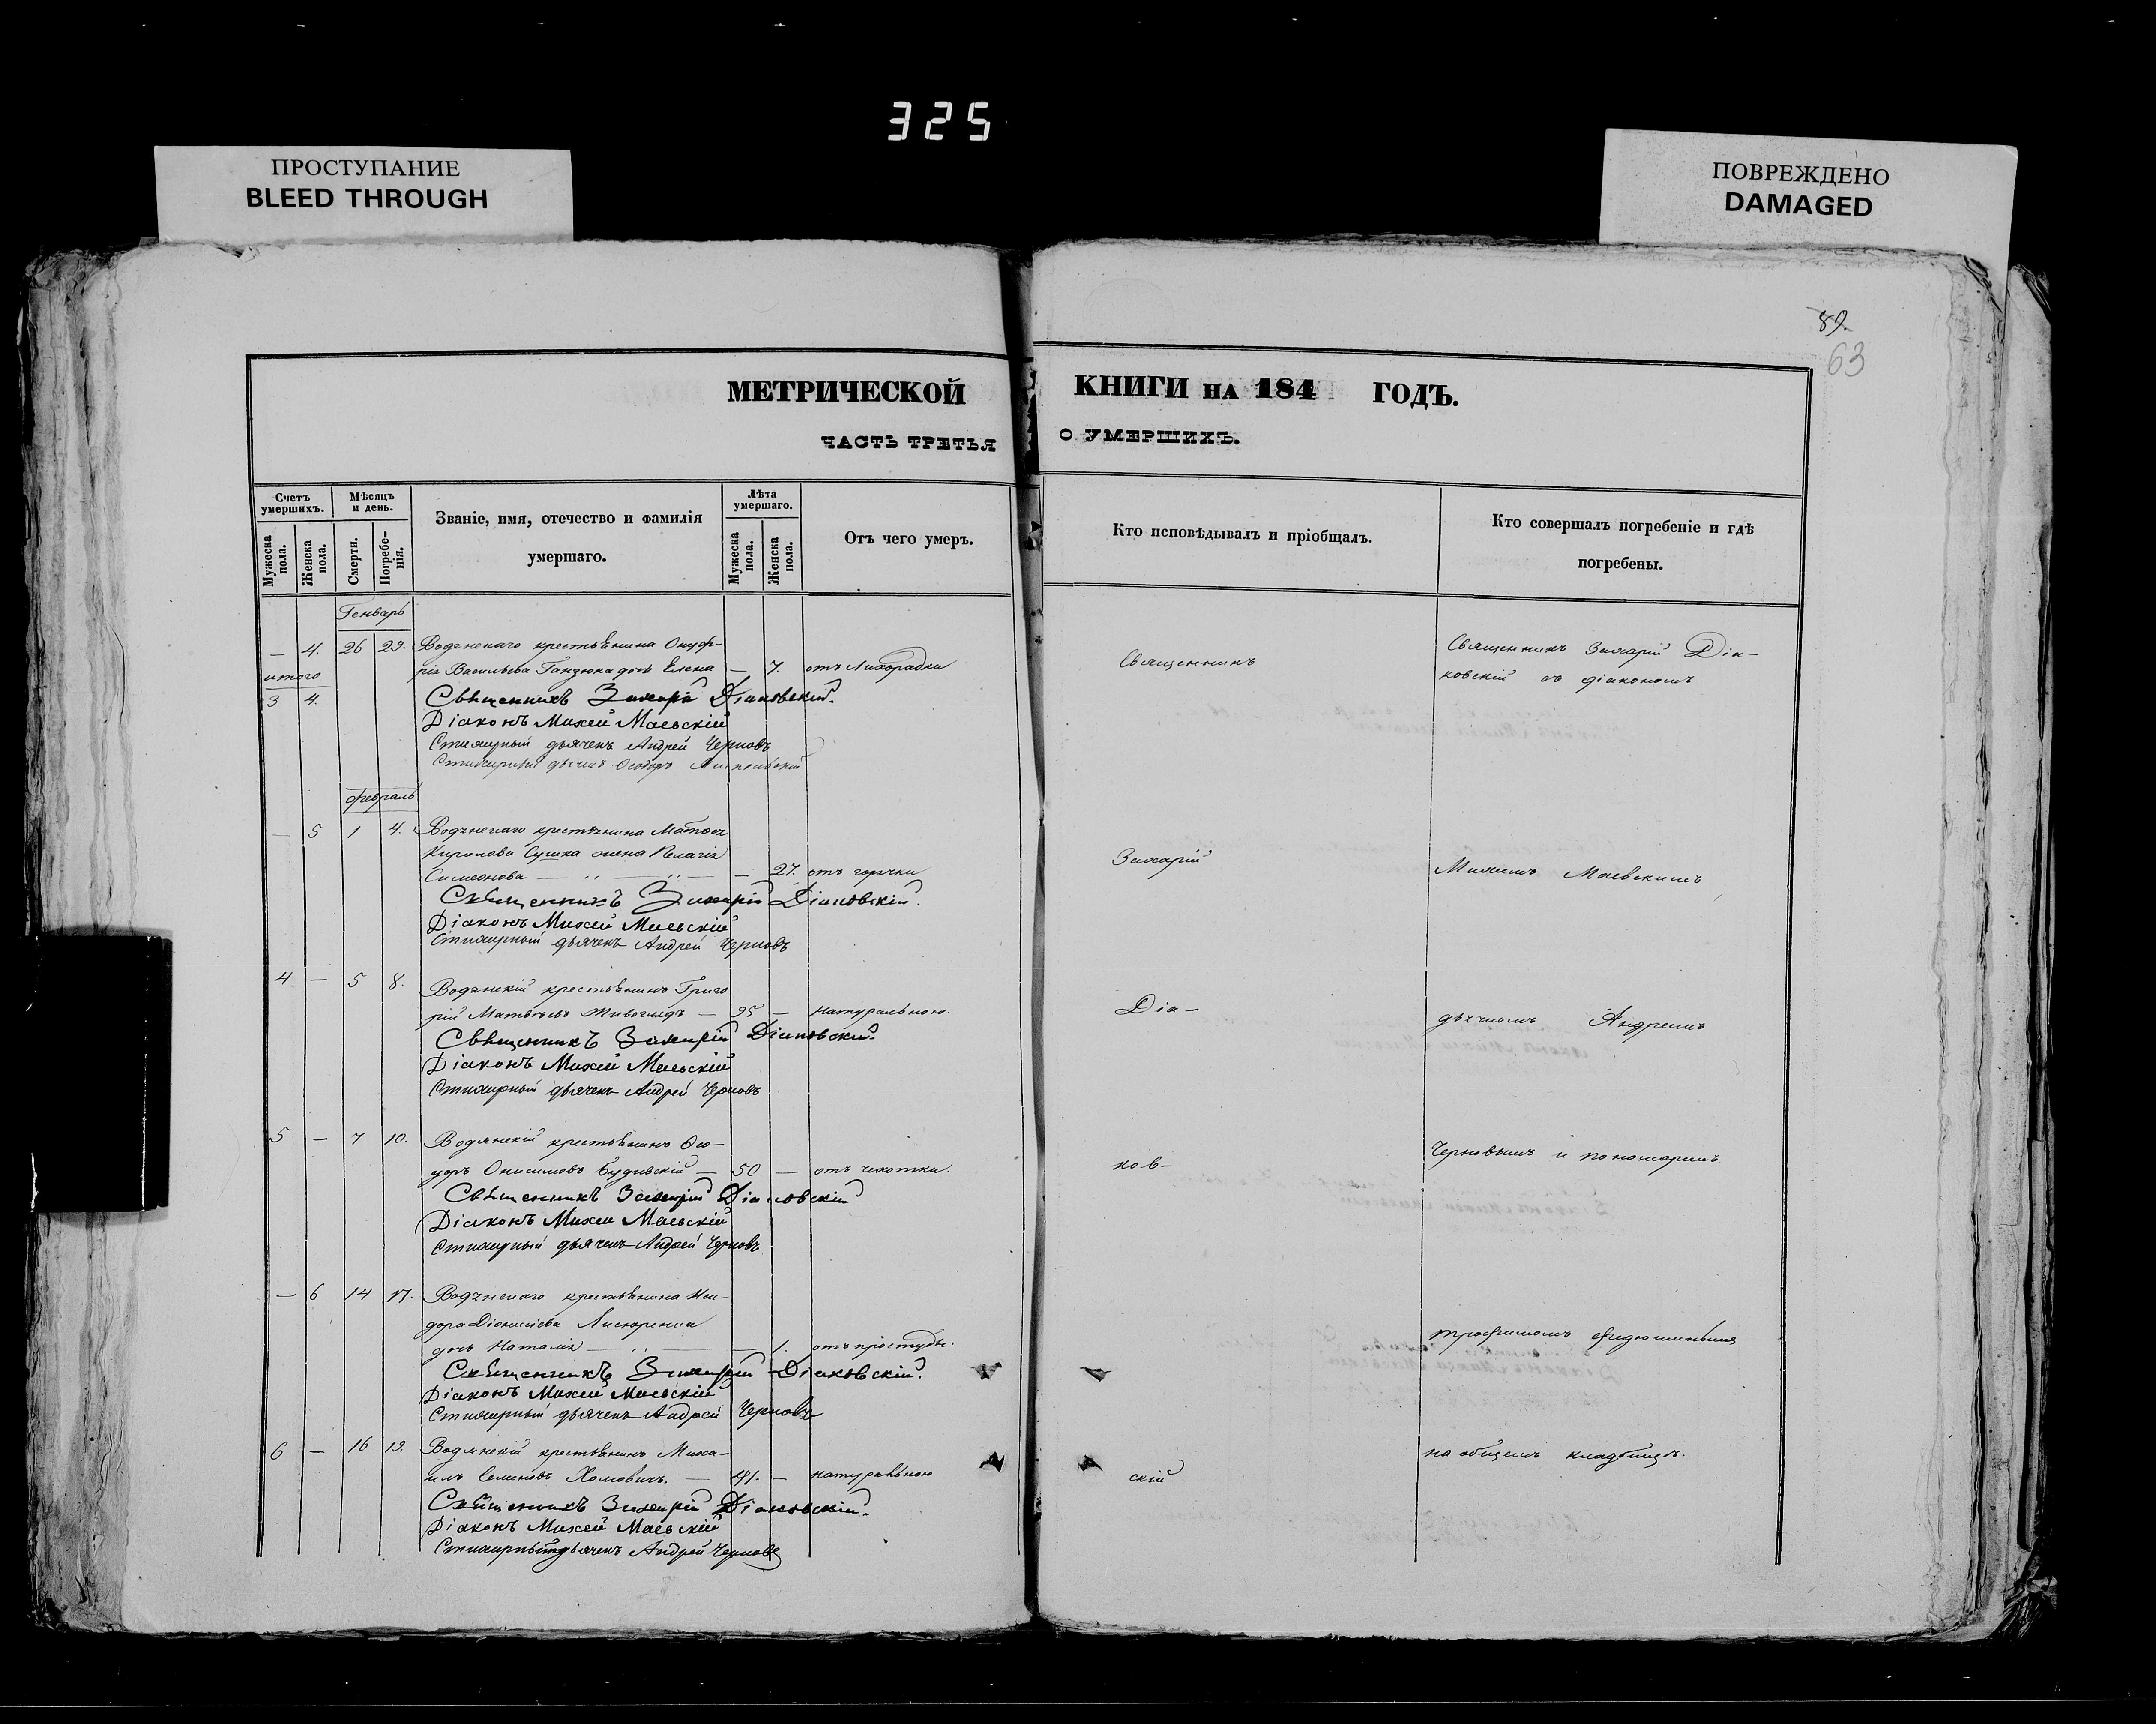 325
ПРОСТУПАНИЕ
BLEED THROUGH
ПОВРЕЖДЕНО
DAMAGED
89.
63
МЕТРИЧЕСКОЙ КНИГИ НА 184 ГОДЪ.
ЧАСТЬ ТРЕТЬЯ О УМЕРШИХЪ.
Счетъ умершихъ.
Мужеска пола.
Женска пола.
Мѣсяцъ и день.
Смерти.
Погребе-нія.
Званіе, имя, отечество и фамилія
умершаго.
Лѣта умершаго.
Мужеска пола.
Женска пола.
Отъ чего умеръ.
Кто исповѣдывалъ и пріобщалъ.
Кто совершалъ погребеніе и гдѣ
погребены.
Генварь
— 4. 26 29. Водянскаго крестьянина Онуф-
рія Васильева Ганзюка дочь Елена — 7. отъ Лихорадки
итого
3 4. Священникъ Захарій Діаковскій.
Діаконъ Михей Маевскій
Стихарный дьячекъ Андрей Черновъ
Стихарный дьячекъ Ѳеодоръ
Февраль
— 5 1 4. Водянскаго крестьянина Матвея
Кирилова Сушка жена Пелагія
Симеонова — 27. отъ горячки
Священникъ Захарій Діаковскій.
Діаконъ Михей Маевскій
Стихарный дьячекъ Андрей Черновъ
4 — 5 8. Водянскій крестьянинъ Григо
рій Матвѣевъ — 95 — натуральною.
Священникъ Захарій Діаковскій.
Діаконъ Михей Маевскій
Стихарный дьячекъ Андрей Черновъ
5 — 7 10. Водянскій крестьянинъ Ѳео-
доръ Онисимовъ Будивскій — 50 — отъ чехотки.
Священникъ Захарій Діаковскій
Діаконъ Михей Маевскій
Стихарный дьячекъ Андрей Черновъ
— 6 14 17. Водянскаго крестьянина Иси-
дора Діонисіева
дочь Наталія — 1. отъ простуды.
Священникъ Захарій Діаковскій.
Діаконъ Михей Маевскій
Стихарный дьячекъ Андрей Черновъ
6 — 16 19. Водянскій крестьянинъ Миха-
илъ Семеновъ Хомовичъ. — 41. — натуральною
Священникъ Захарій Діаковскій.
Діаконъ Михей Маевскій
Стихарный дьячекъ Андрей Черновъ
Священникъ
Захарій
Діа-
ков-
скій
Священникъ Захарій Діа-
ковскій со діакономъ
Михеемъ Маевскимъ
дьячкомъ Андреемъ
Черновымъ и пономаремъ
Трофимомъ
на общемъ кладбищѣ.